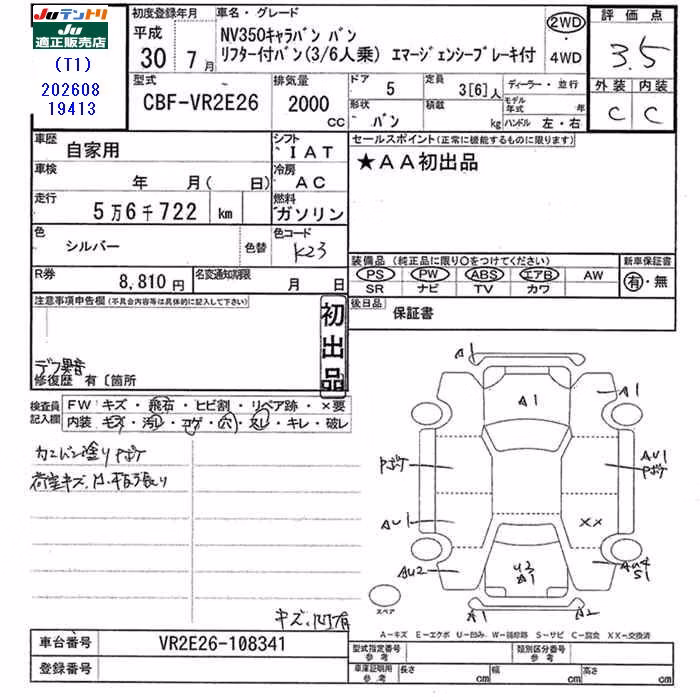 JUテントリ
JU
適正販売店
(T1)
202608
19413
初度登録年月
平成
30年 7月
車名・グレード
NV350キャラバン バン
リフター付バン(3/6人乗) エマージェンシーブレーキ付
2WD
・
4WD
評価点
3.5
外装 内装
C C
型式
CBF-VR2E26
排気量
2000
CC
ドア
5
定員
3[6]人
ディーラー・並行
形状
バン
積載
kg
モデル年式 年
ハンドル 左・右
車歴
自家用
シフト
IAT
車検
年 月( 日)
冷房
AC
走行
5万6千722 km
燃料
ガソリン
色
シルバー
色替
色コード
K23
R券
8,810円
名変通知期限
月 日
セールスポイント(正常に機能するものに限ります)
★AA初出品
装備品(純正品に限り○をつけてください)
PS PW ABS エアB AW
SR ナビ TV カワ
新車保証書
有・無
後日品
保証書
注意事項申告欄(不具合内容等は具体的に記入して下さい)
初出品
デフ異音
修復歴 有〔箇所
検査員
記入欄
FW キズ・飛石・ヒビ割・リペア跡・×要
内装・キズ・汚レ・コゲ・穴・スレ・キレ・破レ
荷室キズ、
キズ、凹有
A1
A1
A1
Pボケ
AU1
Pボケ
AU1
XX
AU2
U2
A1
AU4
S1
スペア
A1
A2
A-キズ E-エクボ U-凹み W-補修跡 S-サビ C-腐食 XX-交換済
車台番号
VR2E26-108341
登録番号
型式指定番号
参考
類別区分番号
参考
車庫証明用
参考
長さ cm 幅 cm 高さ cm